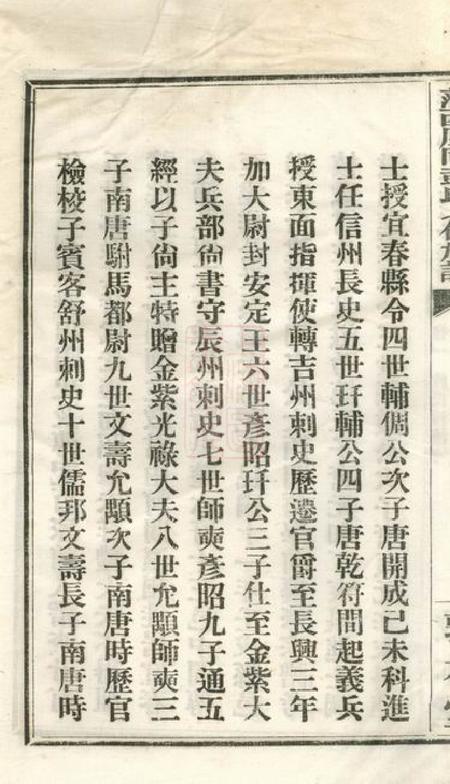 士授宜春縣令四世輔倜公次子唐開成己未科進
士任信州長史五世玕輔公四子唐乾符間起義兵
授東面指揮使轉吉州刺史歷遷官爵至長興三年
加大尉封安定王六世彥昭玕公三子仕至金紫大
夫兵部尚書守辰州刺史七世師奭彥昭九子通五
經以子尚主特贈金紫光祿大夫八世允顒師奭三
子南唐駙馬都尉九世文壽允顒次子南唐時歷官
檢校子賓客舒州刺史十世儒邦文壽長子南唐時